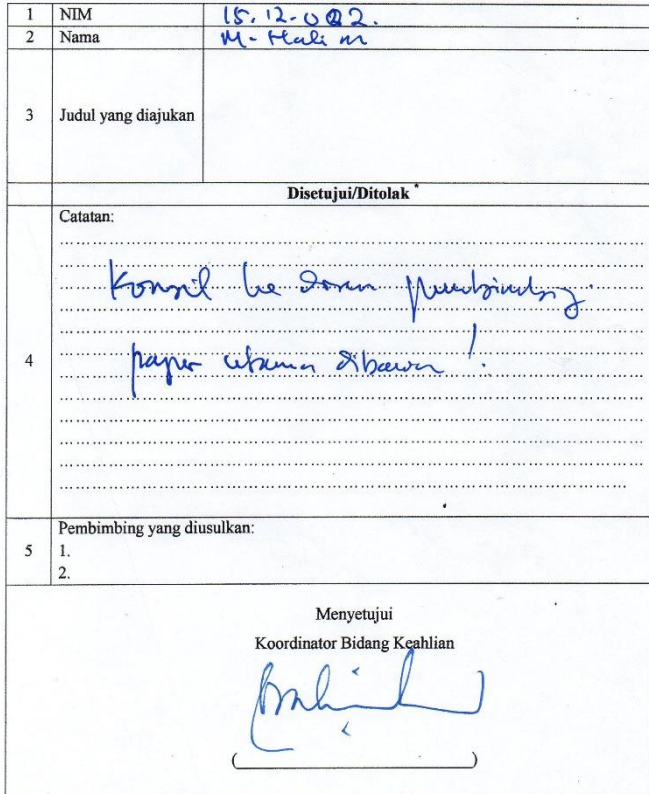 1 NIM 15.12.022.
2 Nama M. Halim
3 Judul yang diajukan
Disetujui/Ditolak *
4 Catatan:
Konsil ke dosen pembimbing.
paper utama dibawa !.
5 Pembimbing yang diusulkan:
1.
2.
Menyetujui
Koordinator Bidang Keahlian
( )